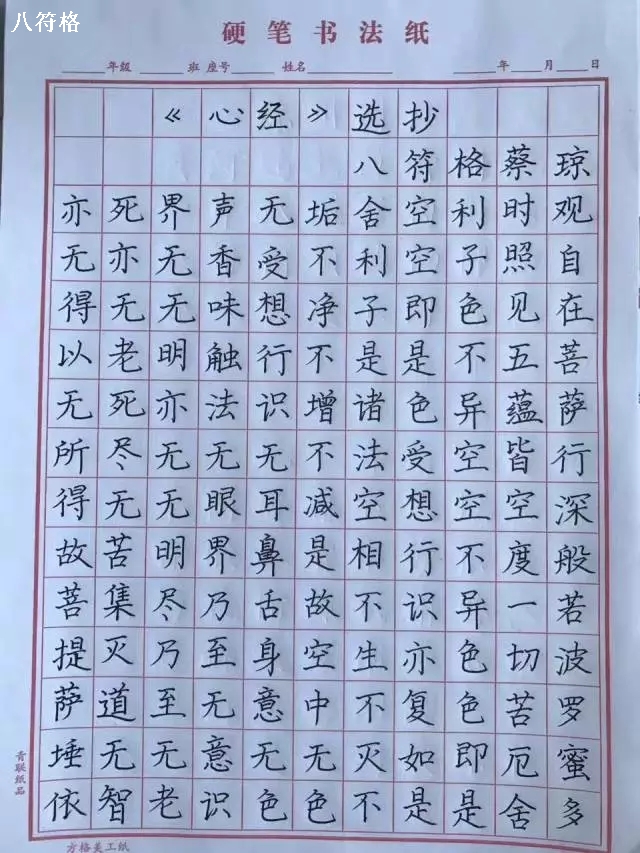 八符格
硬笔书法纸
年级 班 座号 姓名 年 月 日
《心经》选抄
八符格蔡琼
观自在菩萨行深般若波罗蜜多
时照见五蕴皆空度一切苦厄舍
利子色不异空空不异色色即是
空空即是色受想行识亦复如是
舍利子是诸法空相不生不灭不
垢不净不增不减是故空中无色
无受想行识无耳鼻舌身意无色
声香味触法无眼界乃至无意识
界无无明亦无无明尽乃至无老
死亦无老死尽无苦集灭道无智
亦无得以无所得故菩提萨埵依
青联纸品
方格美工纸